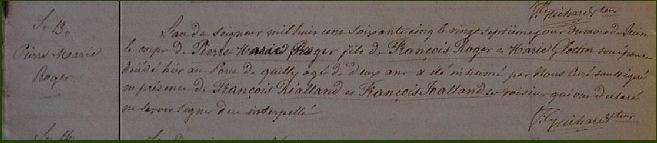 S. B.
Pierre Marie
Roger
L'an du Seigneur mil huit cent soixante cinq le vingt septième jour du mois de Juin
le corps de Pierre Marie Roger fils de François Roger et Marie Glotin son épouse
décédé hier au de quilly agé de deux ans a été inhumé par Nous Curé soussigné
en présence de François Rialland et François Halland ses voisins qui ont déclaré
ne savoir signer de ce interpellé